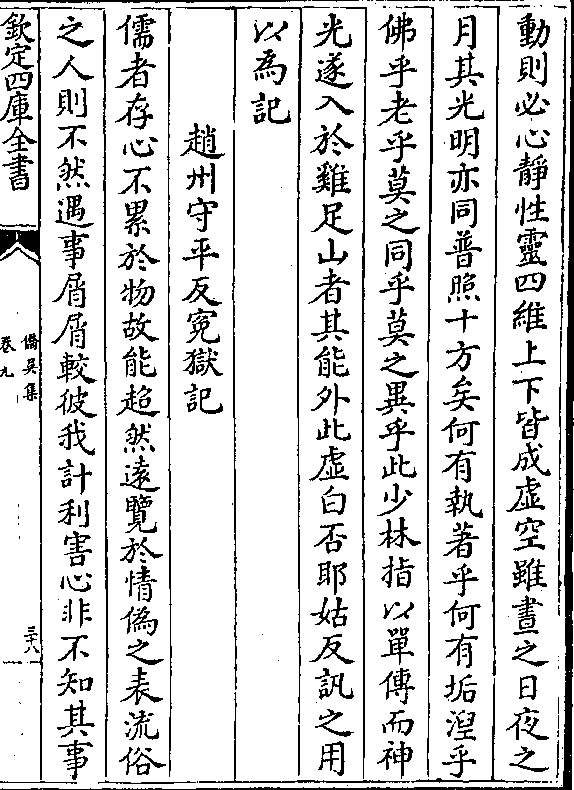 動則必心靜性靈四維上下皆成虛空雖晝之日夜之
月其光明亦同普照十方矣何有執著乎何有垢湼乎
佛乎老乎莫之同乎莫之異乎此少林指以單傳而神
光遂入於雞足山者其能外此虛白否耶姑反訊之用
以為記
趙州守平反寃獄記
儒者存心不累於物故能超然遠覽於情偽之表流俗
之人則不然遇事屑屑較彼我計利害心非不知其事
欽定四庫全書
僑吳集
卷九
三十八